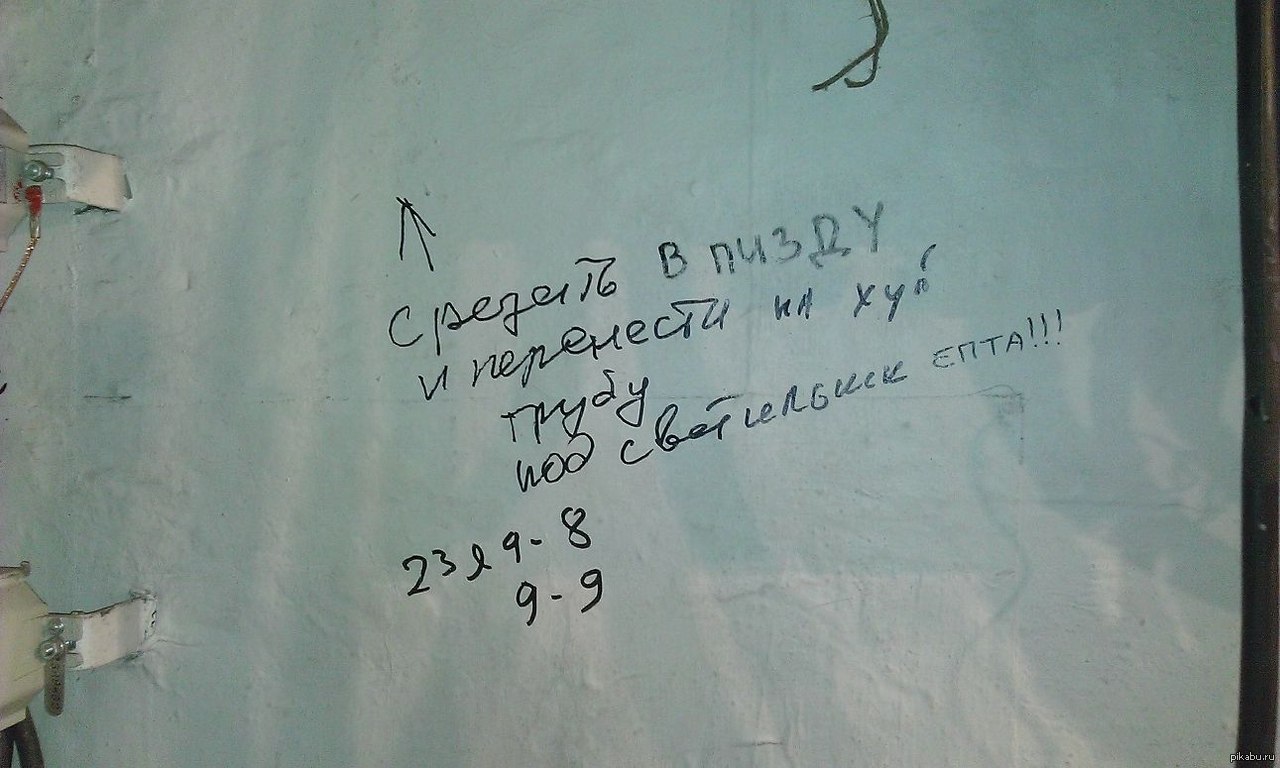 Срезать в пизду
и перенести на хуй
трубу
под светильник епта!!!
9-8
9-9
pikabu.ru